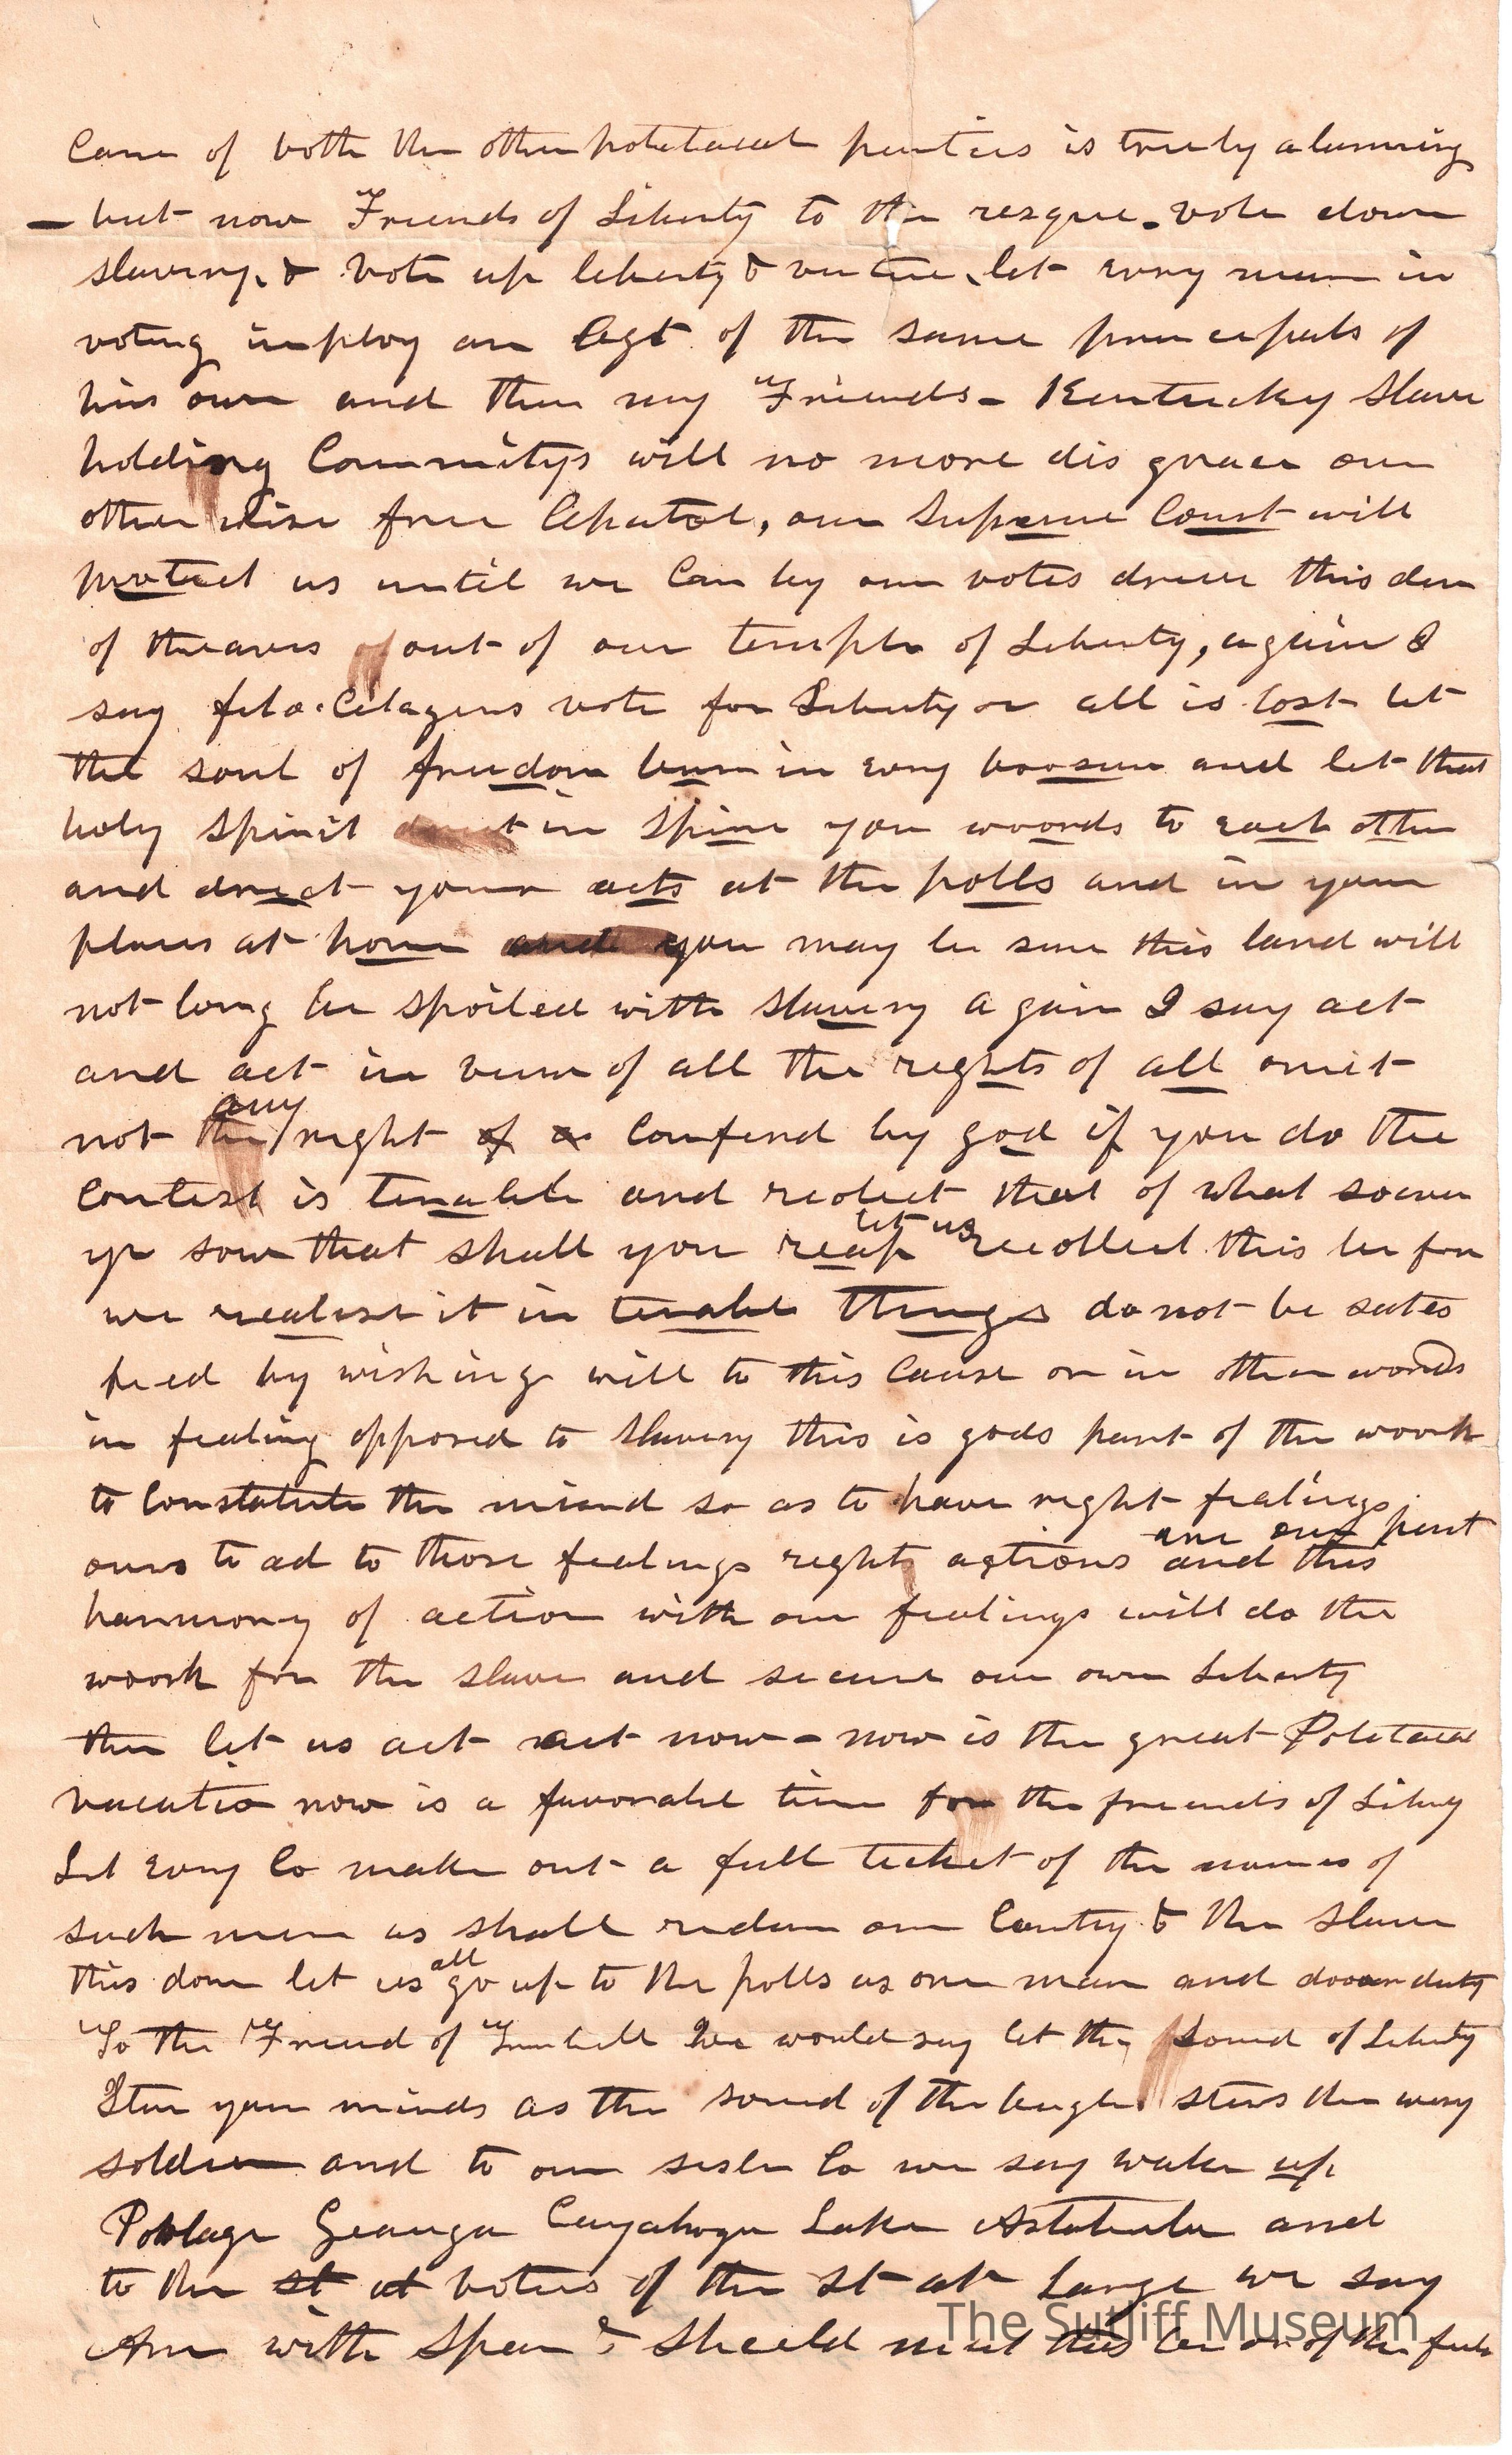 Caus of both the other polataceal parties is truly alarming
- but now Friends of Liberty to the resque - vote down
slavery, & vote up liberty & vertue, let evry man in
voting imploy an Agt of the same princepals of
his own and then my Friends - Kentucky Slave
holding Commitys will no more dis grace our
other wise free Capatol, our Supreme Court will
protect us until we Can by our votes drive this den
of theaves out of our temple of Liberty, again I
say felo Citazens vote for Liberty or all is lost let
the soul of freedom burn in evry boosum and let that
holy spirit in spire you woords to each other
and direct your acts at the polls and in your
places at home and you may be sure this land will
not long be spoiled with slavery a gain I say act
and act in view of all the rights of all omit
not the any right of as Confered by god if you do the
Contest is tenable and recolect that of what soever
ye sow that shall you reap let us recollect this be fore
we realise it in terable things do not be sates
fied by wishing will to this Cause or in other words
in fealing opposed to Slavery this is gods part of the woork
to Constatute the miand so as to have right fealings
ours to ad to those feelings right actions are our part and this
harmony of action with our fealings will do the
woork for the slave and secure our own Liberty
then let us act act now - now is the great Polataceal
vacatio now is a favorable time for the freends of Liberty
Let evry Co make out a full ticket of the names of
such men as shall redeem our Contry & the Slave
this done let us all go up to the polls as one man and do our duty
To the Friend of Trumbell We would say let the sound of Liberty
Stur your minds as the sound of the bugle sturs the wery
soldier and to our sister Co we say wake up
Portage Geauga Cuyahoga Lake Astatula and
to the st at voters of the St at Large we say
Arm with Spear & Sheeld meet this of the
The Sutliff Museum